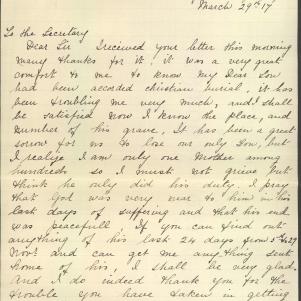 March 29th 17
To the Secretary
Dear Sir I received your letter this morning
many thanks for it. it was a very great
comfort to me to know my Dear Son
had been accorded christian burial. it has
been troubling me very much, and I shall
be satisfied now I know the place, and
number of his grave. It has been a great
sorrow for us to lose our only Son, but
I realize I am only one Mother among
hundreds so I must not grieve but
think he only did his duty. I pray
that God was very near to him in his
last days of suffering and that his end
was peacefull. If you can find out
anything of his last 24 days from 5th to 29
Novr and can get me any thing sent
home of his, I shall be very glad.
And I do indeed thank you for the
trouble you have taken in getting